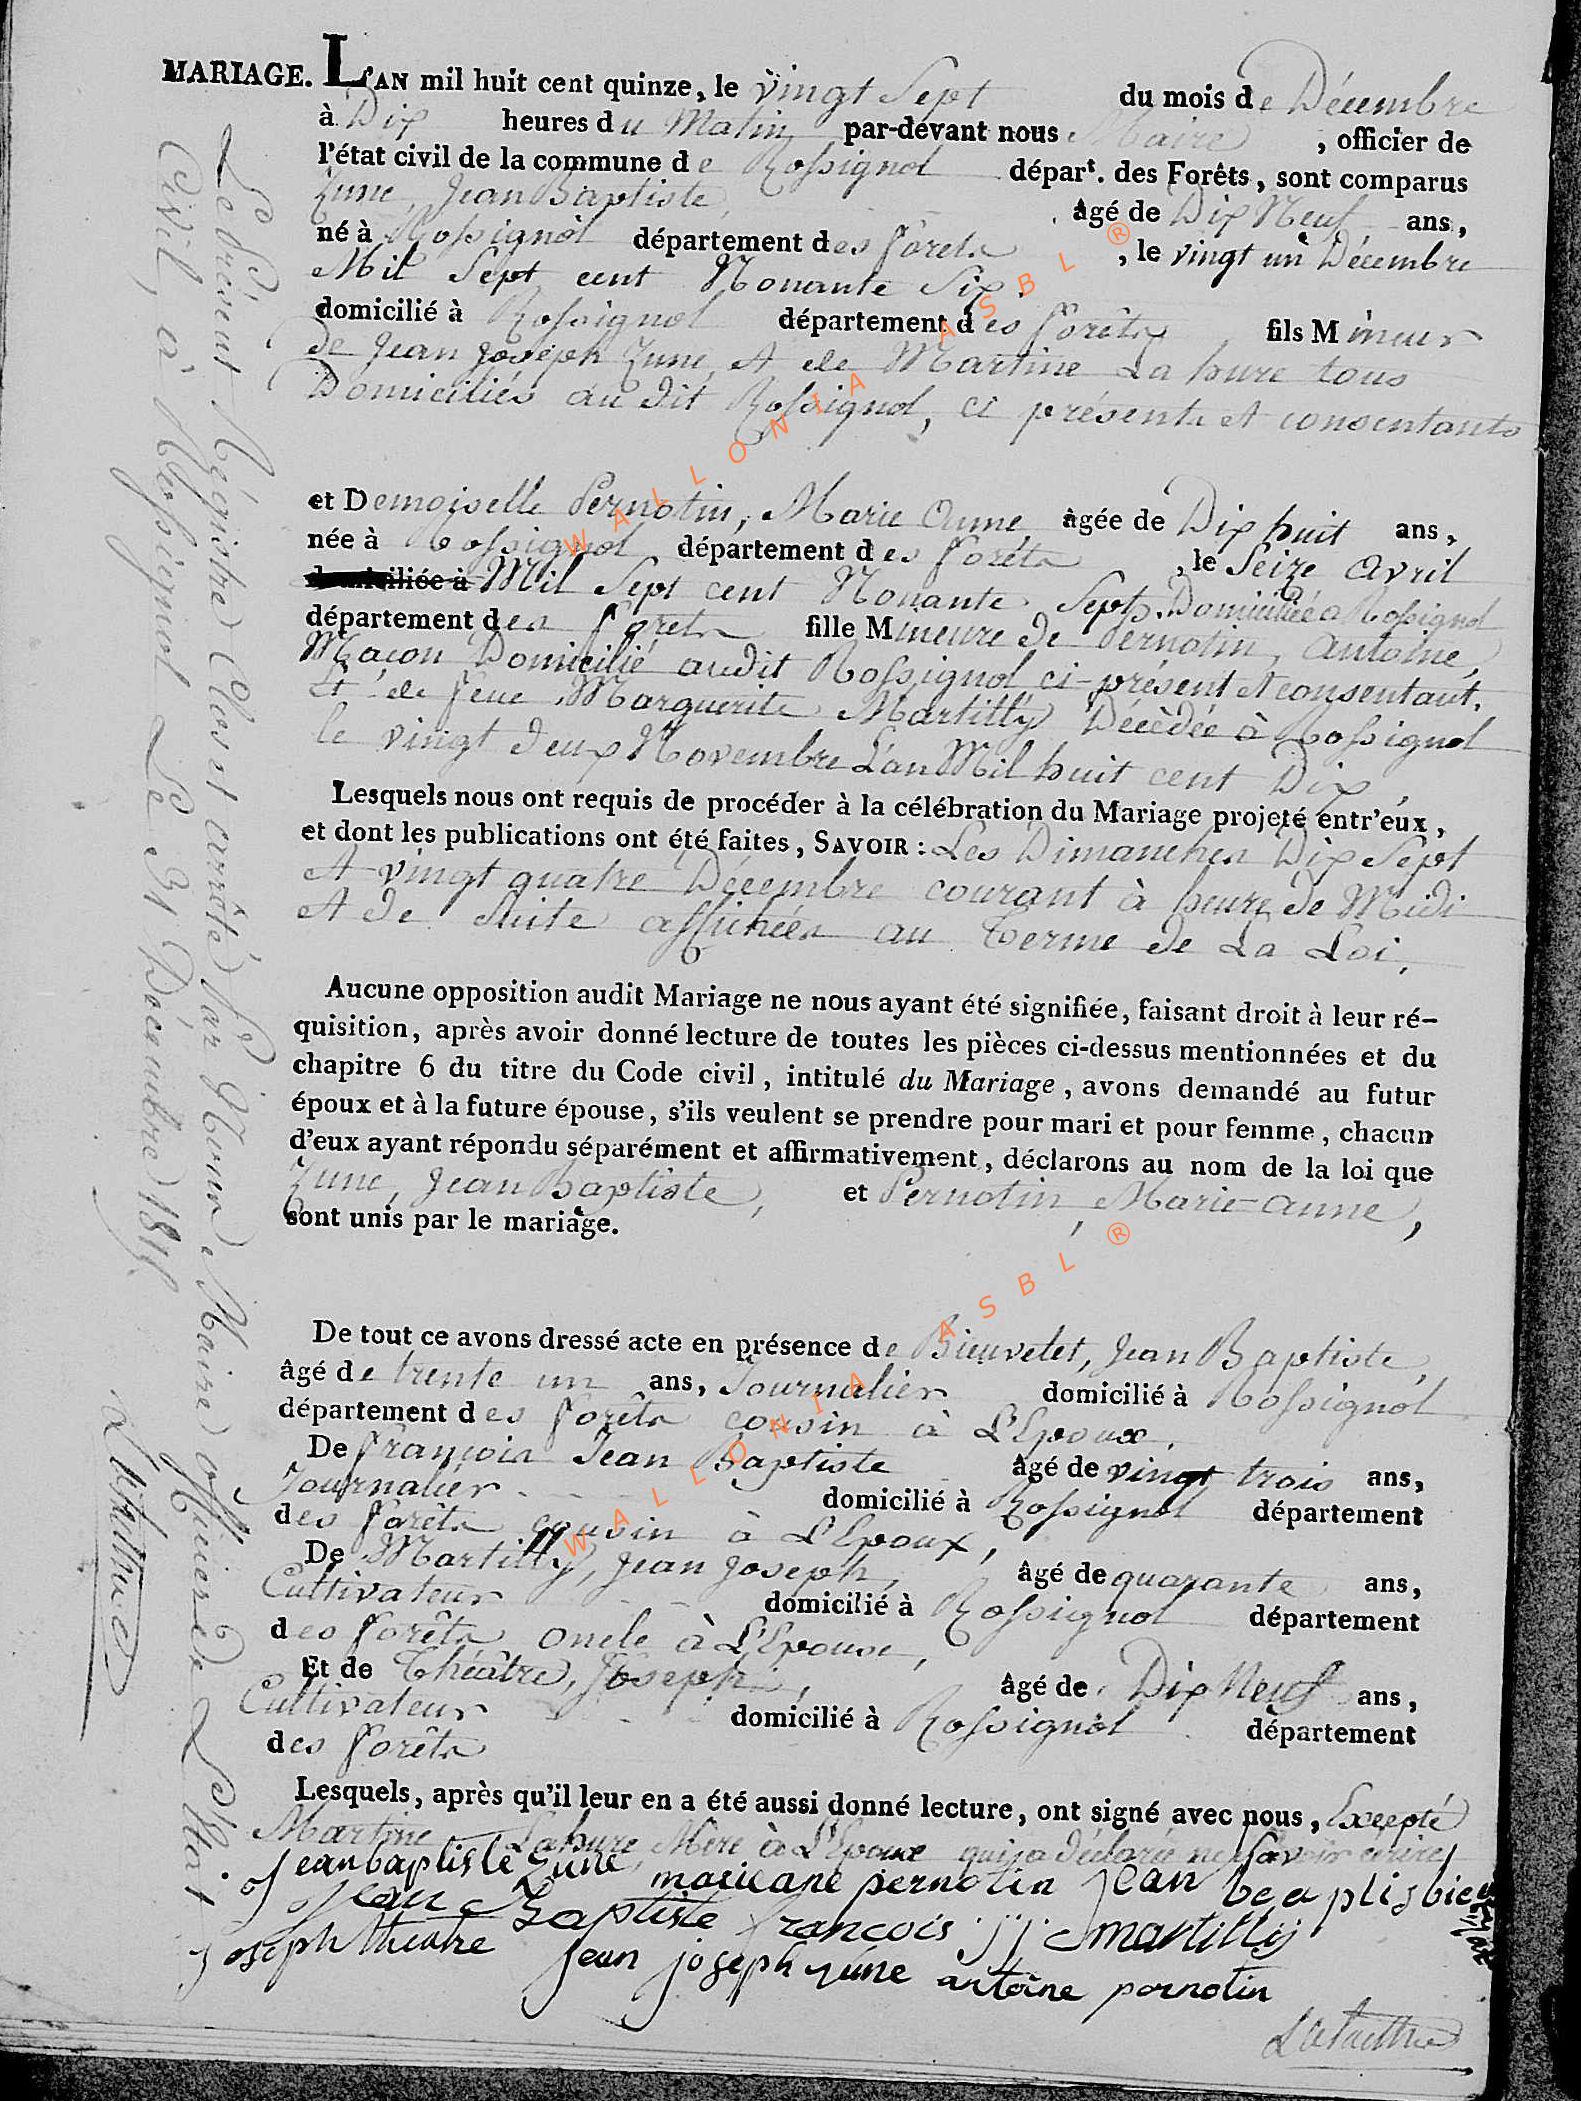 MARIAGE. L'AN mil huit cent quinze, le vingt Sept du mois de Décembre
à Dix heures du Matin par-devant nous Maire, officier de
l'état civil de la commune de Rossignol départ. des Forêts, sont comparus
Zune, Jean Baptiste, âgé de Dix Neuf ans,
né à Rossignol département des forets, le vingt un Décembre
Mil Sept cent Nonante Six.
domicilié à Rossignol département des forêts fils Mineur
de Jean Joseph Zune, et de Martine La hure tous
Domiciliés au dit Rossignol, ci présents et consentants
et Demoiselle Pernotin, Marie Anne, âgée de Dix huit ans,
née à Rossignol département des forêts, le Seize Avril
domiciliée à Mil Sept cent Nonante Sept. Domiciliée à Rossignol
département des forêts fille Mineure de Pernotin, Antoine,
Maçon Domicilié audit Rossignol ci-présent et consentant.
Et de feue Marguerite Martilly Décèdée à Rossignol
le vingt deux Novembre L'an Mil huit cent Dix,
Lesquels nous ont requis de procéder à la célébration du Mariage projeté entr'eux,
et dont les publications ont été faites, SAVOIR : Les Dimanches Dix Sept
et vingt quatre Décembre courant à heure de Midi
et de Suite affichées au Terme de La Loi,
Aucune opposition audit Mariage ne nous ayant été signifiée, faisant droit à leur ré-
quisition, après avoir donné lecture de toutes les pièces ci-dessus mentionnées et du
chapitre 6 du titre du Code civil, intitulé du Mariage, avons demandé au futur
époux et à la future épouse, s'ils veulent se prendre pour mari et pour femme, chacun
d'eux ayant répondu séparément et affirmativement, déclarons au nom de la loi que
Zune, Jean Baptiste, et Pernotin, Marie-anne,
sont unis par le mariage.
De tout ce avons dressé acte en présence de Bieuvelet, Jean Baptiste,
âgé de trente un ans, Journalier domicilié à Rossignol
département des forêts cousin à L'Epoux.
De François Jean Baptiste âgé de vingt trois ans,
Journalier domicilié à Rossignol département
des forêts cousin à L'Epoux,
De Martilly, Jean Joseph, âgé de quarante ans,
Cultivateur domicilié à Rossignol département
des forêts, oncle à L'Epouse,
Et de Théâtre, Joseph, âgé de Dix Neuf ans,
Cultivateur domicilié à Rossignol département
des forêts
Lesquels, après qu'il leur en a été aussi donné lecture, ont signé avec nous, Excepté
Martine Lahure, Mère à L'Epoux qui a déclaré ne savoir écrire,
jean baptiste Zune marieane pernotin jean beaptis
Jean Baptiste francois j j martilly
joseph theatre jean joseph zune antoine pornotin
Le Présent Régistre Clos et arrêté par Nous Maire officier de L'Etat
Civil, à Rossignol Le 31 Décembre 1815
WALLONIA ASBL ®
WALLONIA ASBL ®